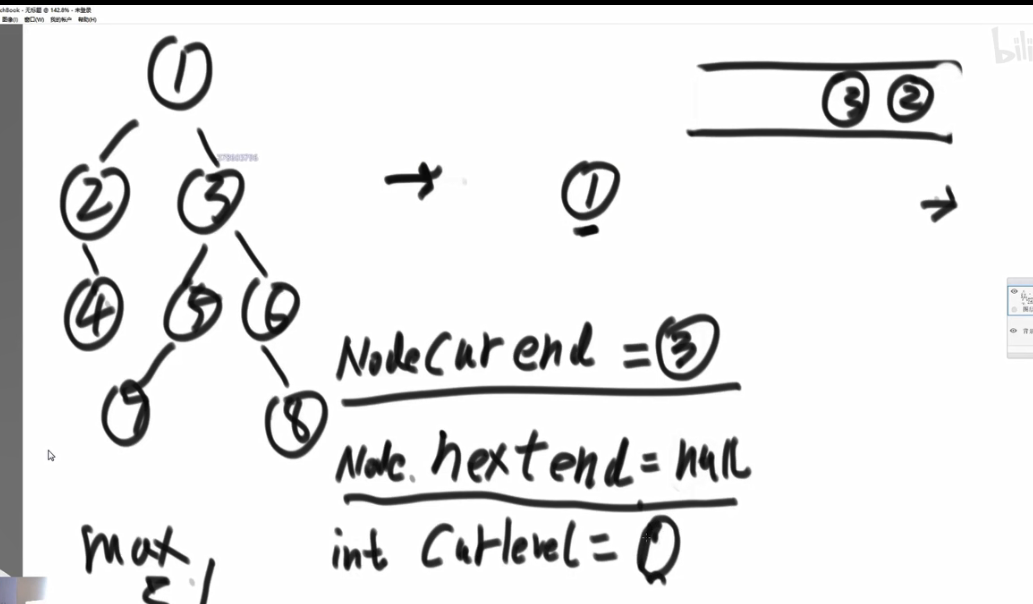 - 无标题 @ 142.8% - 未登录
图像(I) 窗口(W) 我的帐户 帮助(H)
bili
1
3 2
2 3
1
4 5 6
7 8
Node Cur end = 3
Node. next end = null
int Curlevel = 0
max